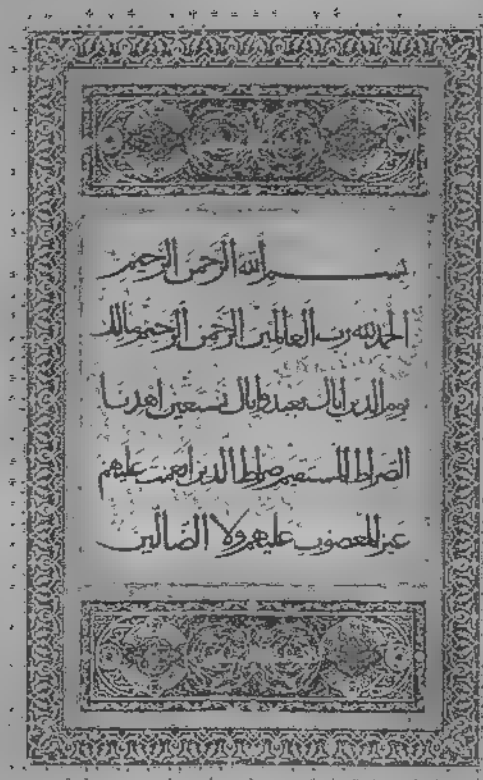 بسم الله الرحمن الرحيم
الحمد لله رب العالمين الرحمن الرحيم مالك
يوم الدين اياك نعبد واياك نستعين اهدنا
الصراط المستقيم صراط الذين انعمت عليهم
غير المغضوب عليهم ولا الضالين